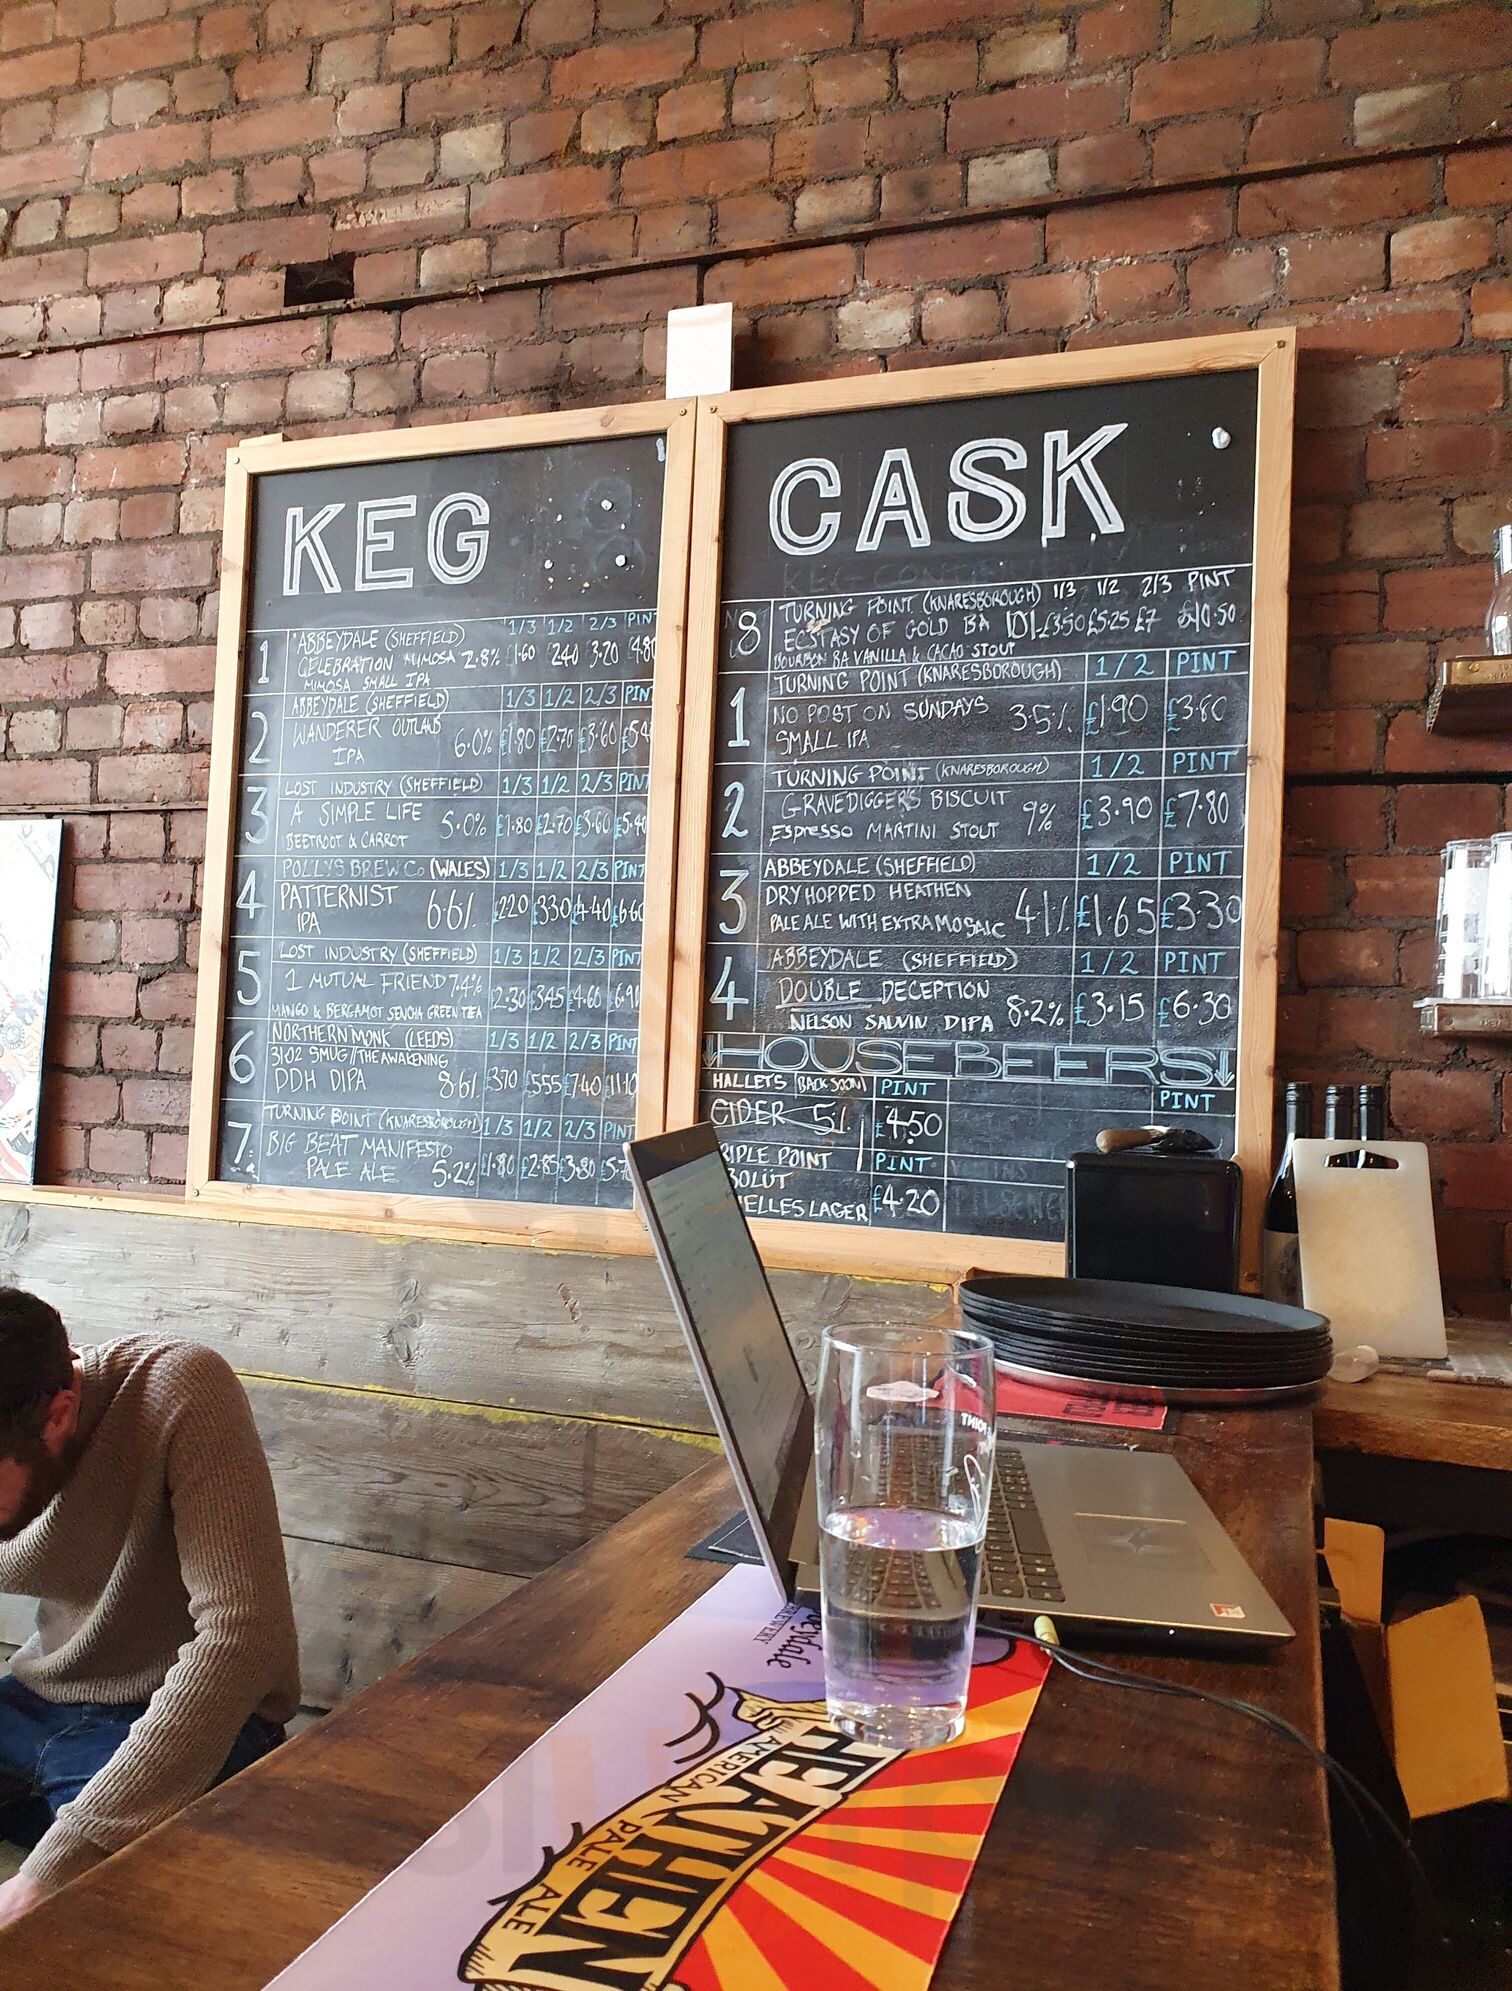 KEG
1
ABBEYDALE (SHEFFIELD) 1/3 1/2 2/3 PINT
CELEBRATION MIMOSA 2.8% 1.60 2.40 3.20 4.80
MIMOSA SMALL IPA
2
ABBEYDALE (SHEFFIELD) 1/3 1/2 2/3 PINT
WANDERER OUTLAUB 6.0% £1.80 £2.70 £3.60 £5.4
IPA
3
LOST INDUSTRY (SHEFFIELD) 1/3 1/2 2/3 PINT
A SIMPLE LIFE 5.0% £1.80 £2.70 £3.60 £5.40
BEETROOT & CARROT
4
POLLYS BREW Co (WALES) 1/3 1/2 2/3 PINT
PATTERNIST 6.6% £2.20 £3.30 £4.40 £6.60
IPA
5
LOST INDUSTRY (SHEFFIELD) 1/3 1/2 2/3 PINT
1 MUTUAL FRIEND 7.4% £2.30 £3.45 £4.60 £6.90
MANGO & BERGAMOT SENCHA GREEN TEA
6
NORTHERN MONK (LEEDS) 1/3 1/2 2/3 PINT
31.02 SMUG//THE AWAKENING
DDH DIPA 8.6% £3.70 £5.55 £7.40 £11.10
7
TURNING POINT (KNARESBOROUGH) 1/3 1/2 2/3 PINT
BIG BEAT MANIFESTO
PALE ALE 5.2% £1.90 £2.85 £3.80 £5.7
CASK
KEG CONTIN
8
TURNING POINT (KNARESBOROUGH) 1/3 1/2 2/3 PINT
ECSTASY OF GOLD BA 10% £3.50 £5.25 £7 £10.50
BOURBON BA VANILLA & CACAO STOUT
1
TURNING POINT (KNARESBOROUGH) 1/2 PINT
NO POST ON SUNDAYS 3.5% £1.90 £3.60
SMALL IPA
2
TURNING POINT (KNARESBOROUGH) 1/2 PINT
GRAVEDIGGER'S BISCUIT 9% £3.90 £7.80
ESPRESSO MARTINI STOUT
3
ABBEYDALE (SHEFFIELD) 1/2 PINT
DRY HOPPED HEATHEN 4.1% £1.65 £3.30
PALE ALE WITH EXTRA MOSAIC
4
ABBEYDALE (SHEFFIELD) 1/2 PINT
DOUBLE DECEPTION 8.2% £3.15 £6.30
NELSON SAUVIN DIPA
HOUSE BEERS
HALLETS (BACK SOON) PINT
CIDER 5% £4.50
PINT
RIPLE POINT PINT
BOLÜT £4.20
ELLES LAGER
POINT
BREWERY
HEATHEN
AMERICAN PALE ALE